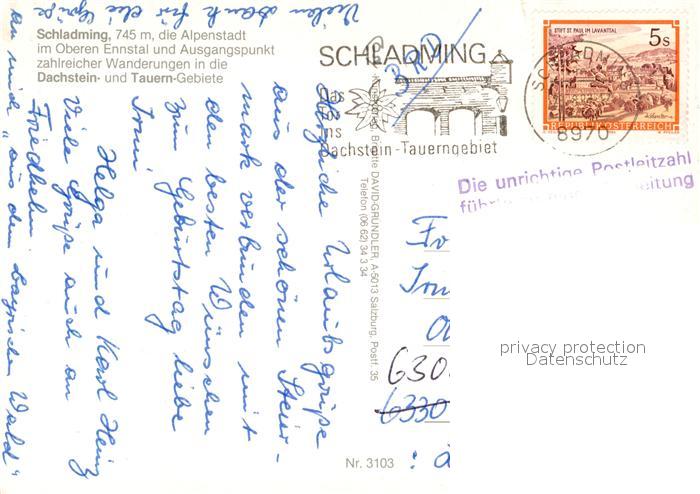 Schladming, 745 m, die Alpenstadt
im Oberen Ennstal und Ausgangspunkt
zahlreicher Wanderungen in die
Dachstein- und Tauern-Gebiete
Herzliche Urlaubsgrüße
aus der schönen Steier-
mark verbunden mit
den besten Wünschen
zum Geburtstag liebe
Irmi.
Helga und Karl Heinz
Viele Grüße auch an
Friedhelm
Vielen Dank für die Grüße
an mich "aus dem bayrischen Wald"
SCHLADMING
Das
ins
Dachstein-Tauerngebiet
320
STIFT ST. PAUL IM LAVANTTAL
5s
REPUBLIK ÖSTERREICH
SCHLADMING
8970
Die unrichtige Postleitzahl
Brigitte DAVID-GRÜNDLER, A-5013 Salzburg, Postf. 35
Telefon (06 62) 34 3 34
630
6330
privacy protection
Datenschutz
Nr. 3103